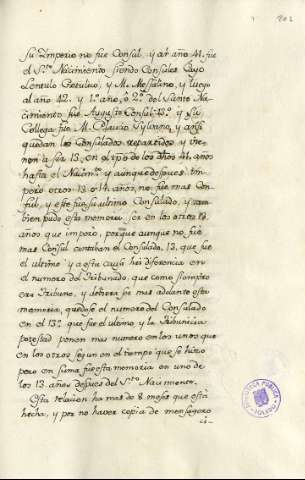 su Imperio no fue Consul, y al año 41. fue
el S.to Nacimiento siendo Consules Cayo
Lentulo Getulico, y M. Mesalino, y luego
al año 42. y 1.º año, ô 2.º del Santo Na-
cimiento fue Augusto Consul 13.º y su
Collega fue M. Plaucio Sylvano, y ansi
quedan los Consulados repartidos y vie-
nen â ser 13. en el tpo de los años 41. años
hasta el Nacim.to y aunque despues Im-
però otros 13 o 14 años, no fue mas Con-
sul, y este fue su ultimo Consulado, y tam-
bien pudo esta memoria ser en los otros 13.
años que imperò, porque aunque no fue
mas Consul contaban el Consulado, 13. que fue
el ultimo y a esta causa hai diferencia en
el numero del Tribunado, que como siempre
era Tribuno, y debiera ser mas adelante esta
memoria, quedose el numero del Consulado
en el 13.º que fue el ultimo y la Tribunicia
potestad ponen mas numero en los unos que
en los otros segun en el tiempo que se hizo
pero en suma fue esta memoria en uno de
los 13. años despues del S.to Nacimiento.
Esta relacion ha mas de 8 meses que està
hecha, y por no haver copia de mensageros
BIBLIOTECA PUBLICA
TOLEDO